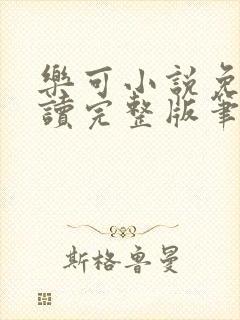 樂可小説免
讀完整版筆
斯格魯曼